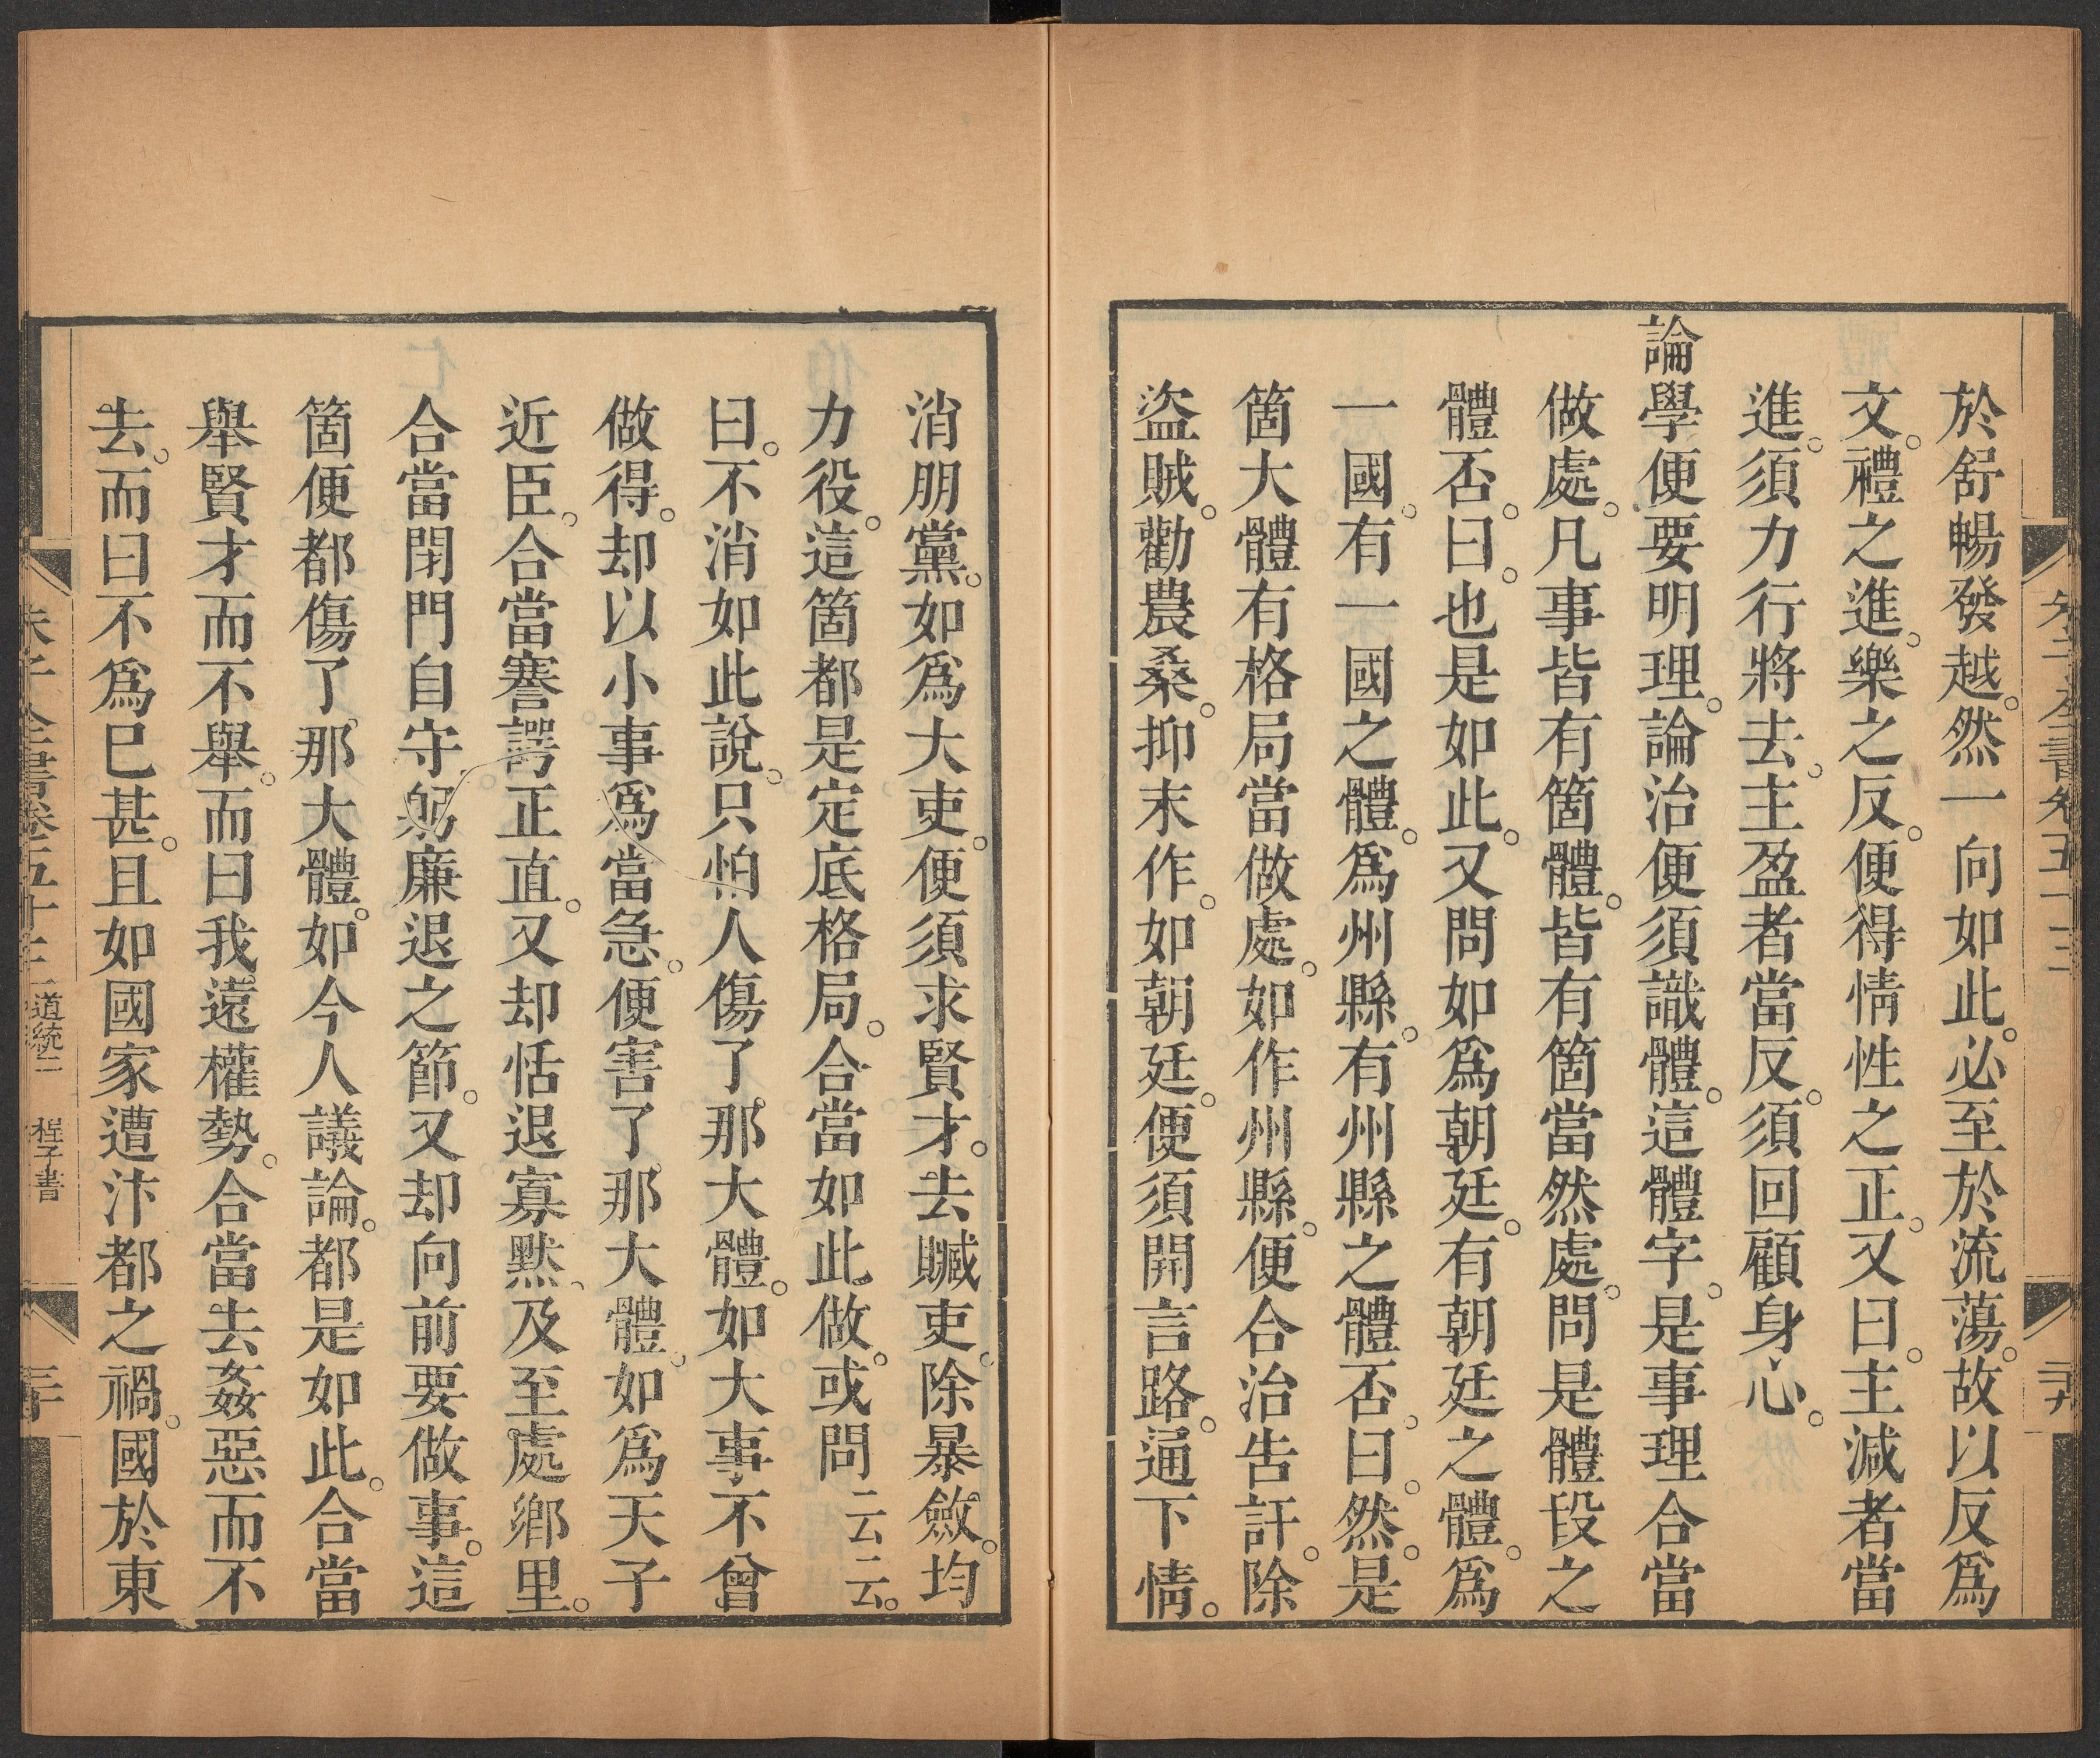 於舒暢發越。然一向如此。必至於流蕩。故以反爲
文。禮之進。樂之反。便得情性之正。又曰。主減者當
進。須力行將去。主盈者當反。須回顧身心。
論學便要明理。論治便須識體。這體字。是事理合當
做處。凡事皆有箇體。皆有箇當然處。問是體段之
體否。曰。也是如此。又問如爲朝廷。有朝廷之體。爲
一國。有一國之體。爲州縣。有州縣之體否。曰。然。是
箇大體有格局當做處。如作州縣。便合治告訐。除
盜賊。勸農桑。抑末作。如朝廷。便須開言路。通下情。
消朋黨。如爲大吏。便須求賢才。去贓吏。除暴斂。均
力役。這箇都是定底格局。合當如此做。或問云云。
曰。不消如此說。只怕人傷了那大體。如大事不曾
做得。却以小事爲當急。便害了那大體。如爲天子
近臣。合當謇諤正直。又却恬退寡默。及至處鄉里。
合當閉門自守。躬廉退之節。又却向前要做事。這
箇便都傷了那大體。如今人議論。都是如此。合當
舉賢才而不舉。而曰我遠權勢。合當去姦惡而不
去。而曰不爲已甚。且如國家遭汴都之禍。國於東
朱子全書卷五十三 道統二 程子書 三十